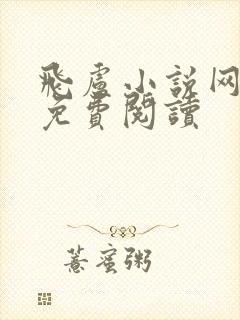 飛盧小説网
免費閱讀
薏蜜粥